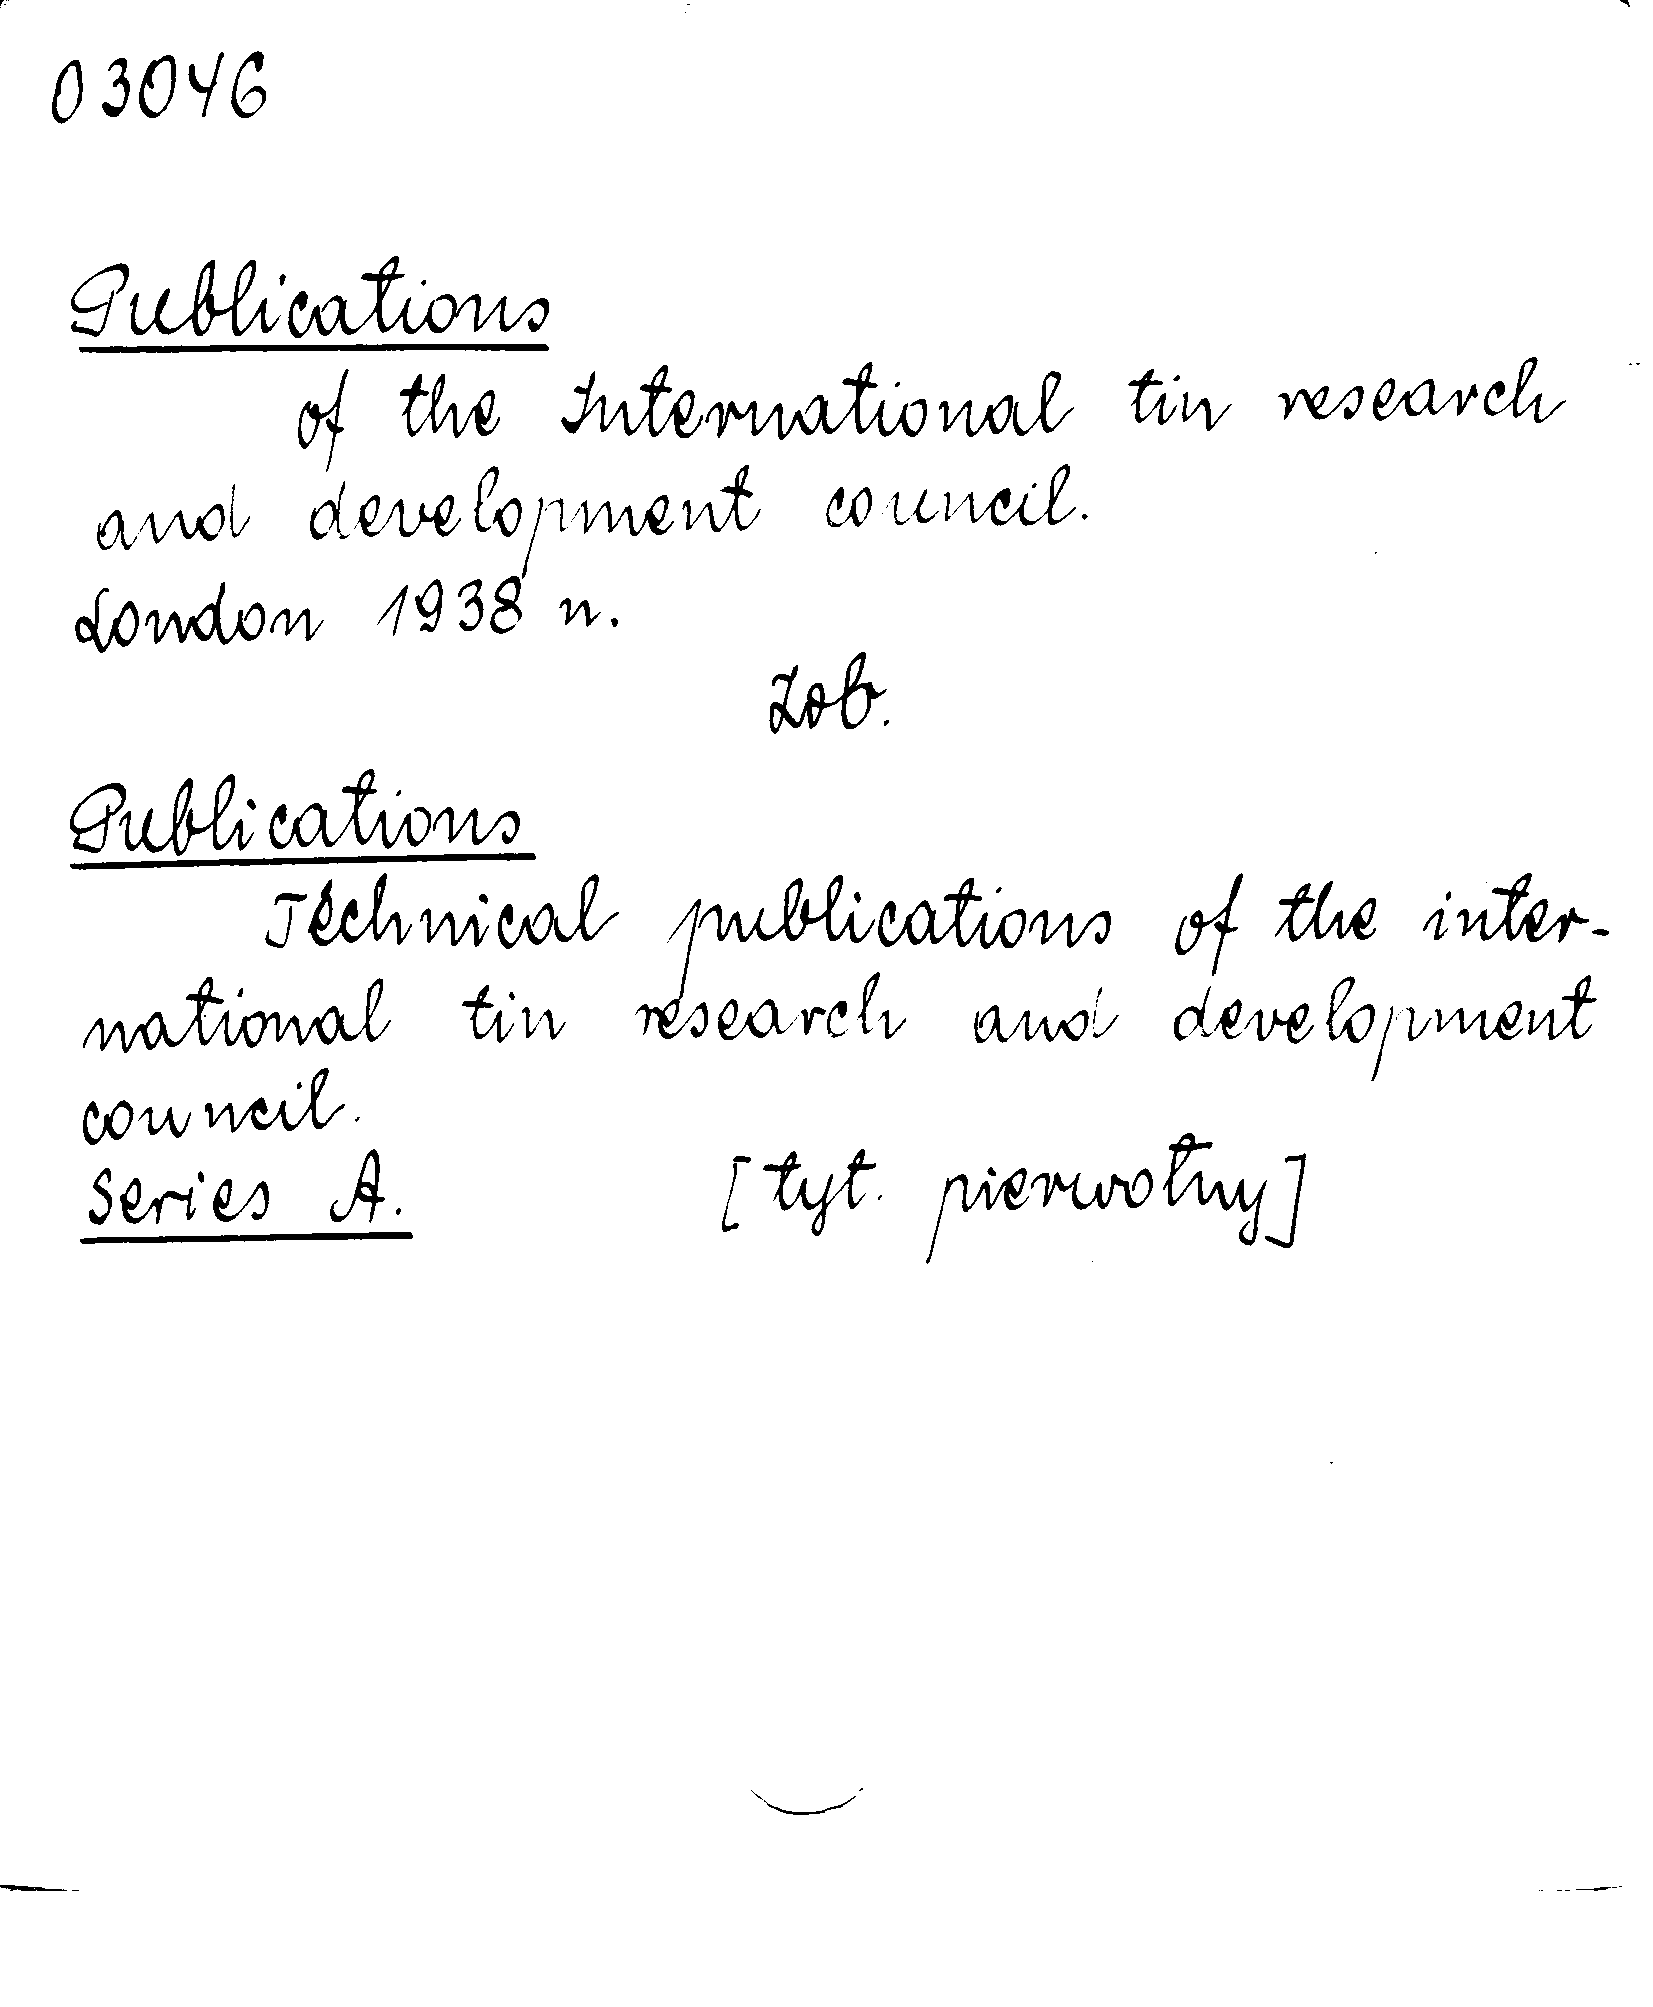 03046
Publications
of the International tin research
and development council.
London 1938 n.
Zob.
Publications
Technical publications of the inter-
national tin research and development
council.
Series A. [tyt. pierwotny]